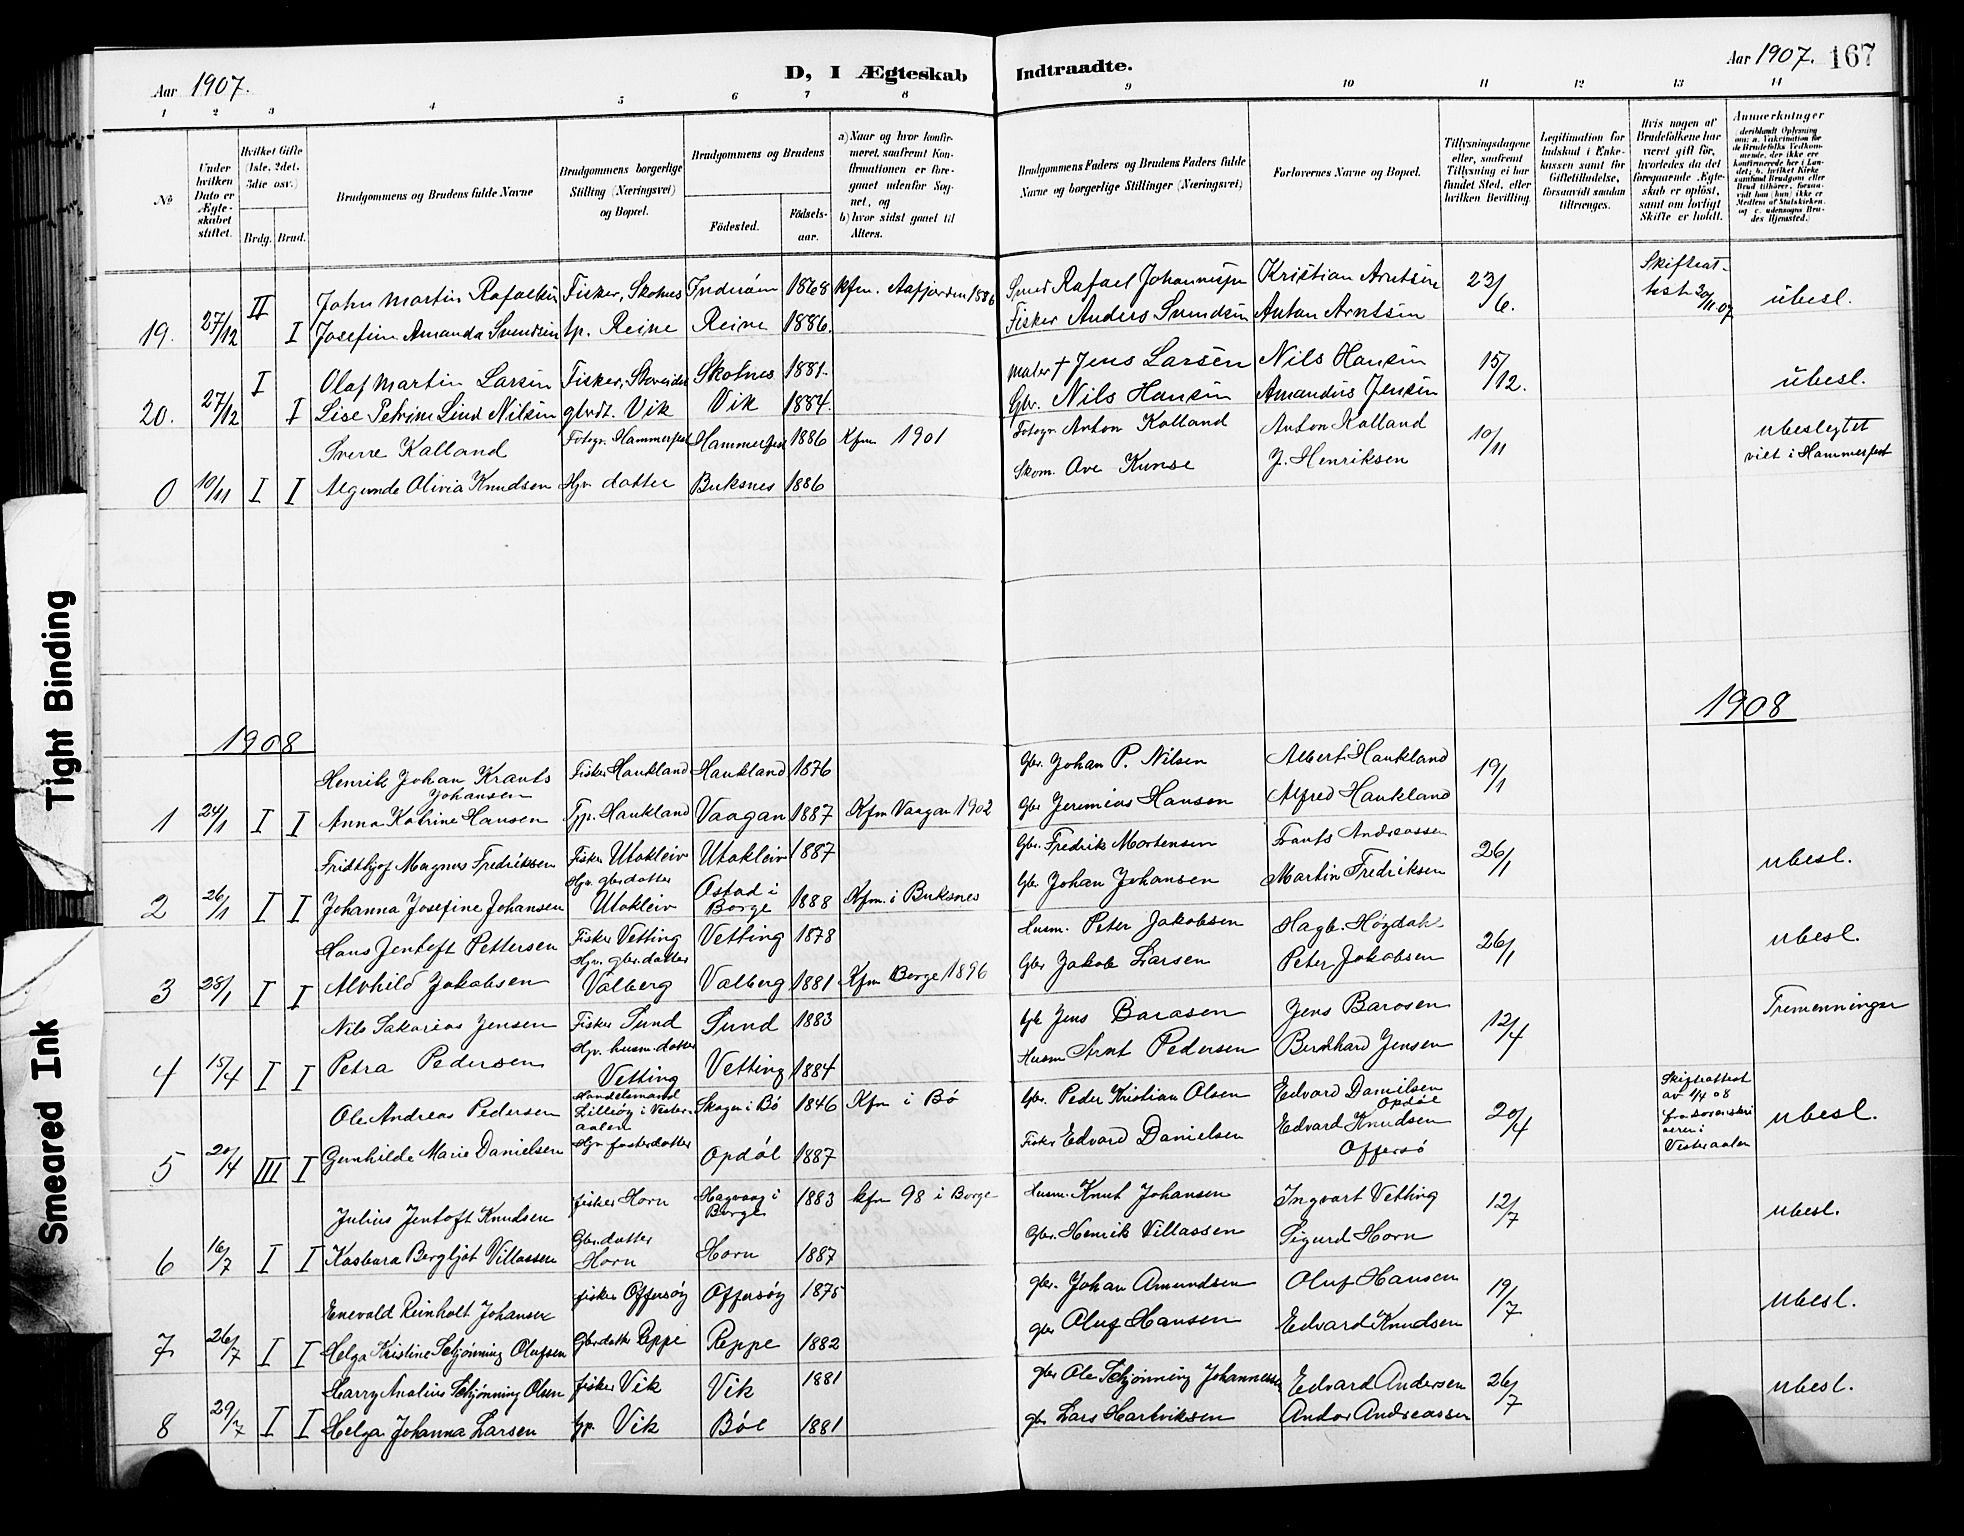 Aar 1907.
D, I Ægteskab Indtraadte.
Aar 1907. 167
1 2 3 4 5 6 7 8 9 10 11 12 13 14
No
Under hvilken Dato er Ægteskabet stiftet.
Hvilket Gifte (1ste, 2det, 3die osv.)
Brdg. Brud.
Brudgommens og Brudens fulde Navne
Brudgommens borgerlige Stilling (Næringsvei) og Bopæl.
Brudgommens og Brudens
Födested. Födselsaar.
a) Naar og hvor konfirmeret, saafremt Konfirmationen er foregaaet udenfor Sognet, og
b) hvor sidst gaaet til Alters.
Brudgommens Faders og Brudens Faders fulde Navne og borgerlige Stillinger (Næringsvei)
Forlovernes Navne og Bopæl.
Tillysningsdagene eller, saafremt Tillysning ei har fundet Sted, efter hvilken Bevilling.
Legitimation for Indskud i Enkekassen samt for Giftetilladelse, forsaavidt saadan tiltrænges.
Hvis nogen af Brudefolkene har været gift för, hvorledes da det foregaaende Ægteskab er oplöst, samt om lovligt Skifte er holdt.
Anmærkninger
19. 27/12 II John Martin Rafaelsen Fisker, Skotnes Inderøen 1868 kfm. Aafjorden 1886 Smed Rafael Johannesen Kristian Arntsen 23/6. Skifteattest 30/11 07 übesl.
I Josefine Amanda Svendsen tp. Reine Reine 1886. Fisker Anders Svendsen Anton Arntsen
20. 27/12 I Olaf Martin Larsen Fisker, Skotnes 1881. † Jens Larsen Nils Hansen 15/12. übesl.
I Lise Petrine Lind Nilsen gbrdt. Vik Vik 1884. Gbr. Nils Hansen Amandus Jensen
Sverre Kalland Fotogr. Hammerfest Hammerfest 1886 Kfm 1901 Fotogr Anton Kalland Anton Kalland 10/11 ubeslegtet
viet i Hammerfest
0 10/11 I I Algunde Olivia Knudsen Hjv. datter Buksnes 1886 Skom. Ave Kunse J. Henriksen
1908
1908
Henrik Johan Krants Johansen Fisker Haukland Haukland 1876 Gbr. Johan P. Nilsen Albert Haukland 19/1
1 24/1 I I Anna Katrine Hansen Tjp. Haukland Vaagan 1887 Kfm Vaagan 1902 Gbr Jeremias Hansen Alfred Haukland
Fridthjof Magnus Fredriksen Fisker Utakleiv Utakleiv 1887 Gbr. Fredrik Mortensen Frants Andreassen 26/1 ubesl.
2 26/1 I I Johanna Josefine Johansen Hjv. gbrdatter Utakleiv Ostad i Borge 1888 Kfm. i Buksnes Gbr Johan Johansen Martin Fredriksen
Hans Jentoft Pettersen Fisker Vetting Vetting 1878 Husm. Peter Jakobsen Hagb. Høydahl 26/1 ubesl.
3 28/1 I I Alvhild Jakobsen Hjv. gbr.datter Valberg Valberg 1881 Kfm Borge 1896 Gbr Jakob Larsen Peter Jakobsen
Nils Sakarias Jensen Fisker Sund Sund 1883 Gbr Jens Barosen Jens Barosen 12/4 Tremenninger
4 15/4 I I Petra Pedersen Hjv. husm.datter Vetting Vetting 1884 Husm Arnt Pedersen Bernhard Jensen
Ole Andreas Pedersen Handelsmand Lilleøy i Vesteraalen Skagen i Bø 1846 Kfm i Bø Gbr. Peder Kristian Olsen Edvard Danielsen Opdøl 20/4 Skifteattest av 1/4 08 fra sorenskriveren i Vesteraalen ubesl.
5 20/4 III I Gunhilde Marie Danielsen Hjv. fosterdatter Opdøl 1887 Fisker Edvard Danielsen Edvard Knudsen Offersø
Julius Jentoft Knudsen fisker Horn Hagvaag i Borge 1883 kfm 98 i Borge Husm. Knut Johansen Ingvart Vetting 12/7 ubesl.
6 16/7 I I Kasbara Bergljot Villassen Gbr.datter Horn Horn 1887 Gbr. Henrik Villassen Sigurd Horn
Enevold Reinholt Johansen fisker Offersøy Offersøy 1875 gbr. Johan Amundsen Oluf Hansen 19/7 ubesl.
7 26/7 I I Helga Kristine Schjønning Olufsen Gbrdatter Peppe Peppe 1882 gbr Oluf Hansen Edvard Knudsen
Harry Analius Schjønning Olsen fisker Vik Vik 1881 gbr Ole Schjønning Johannessen Edvard Andersen 26/7 ubesl.
8 29/7 I I Helga Johanna Larsen tjp. Vik Bøl 1881 gbr Lars Hartviksen Andor Andreassen
Tight Binding
Smeared Ink